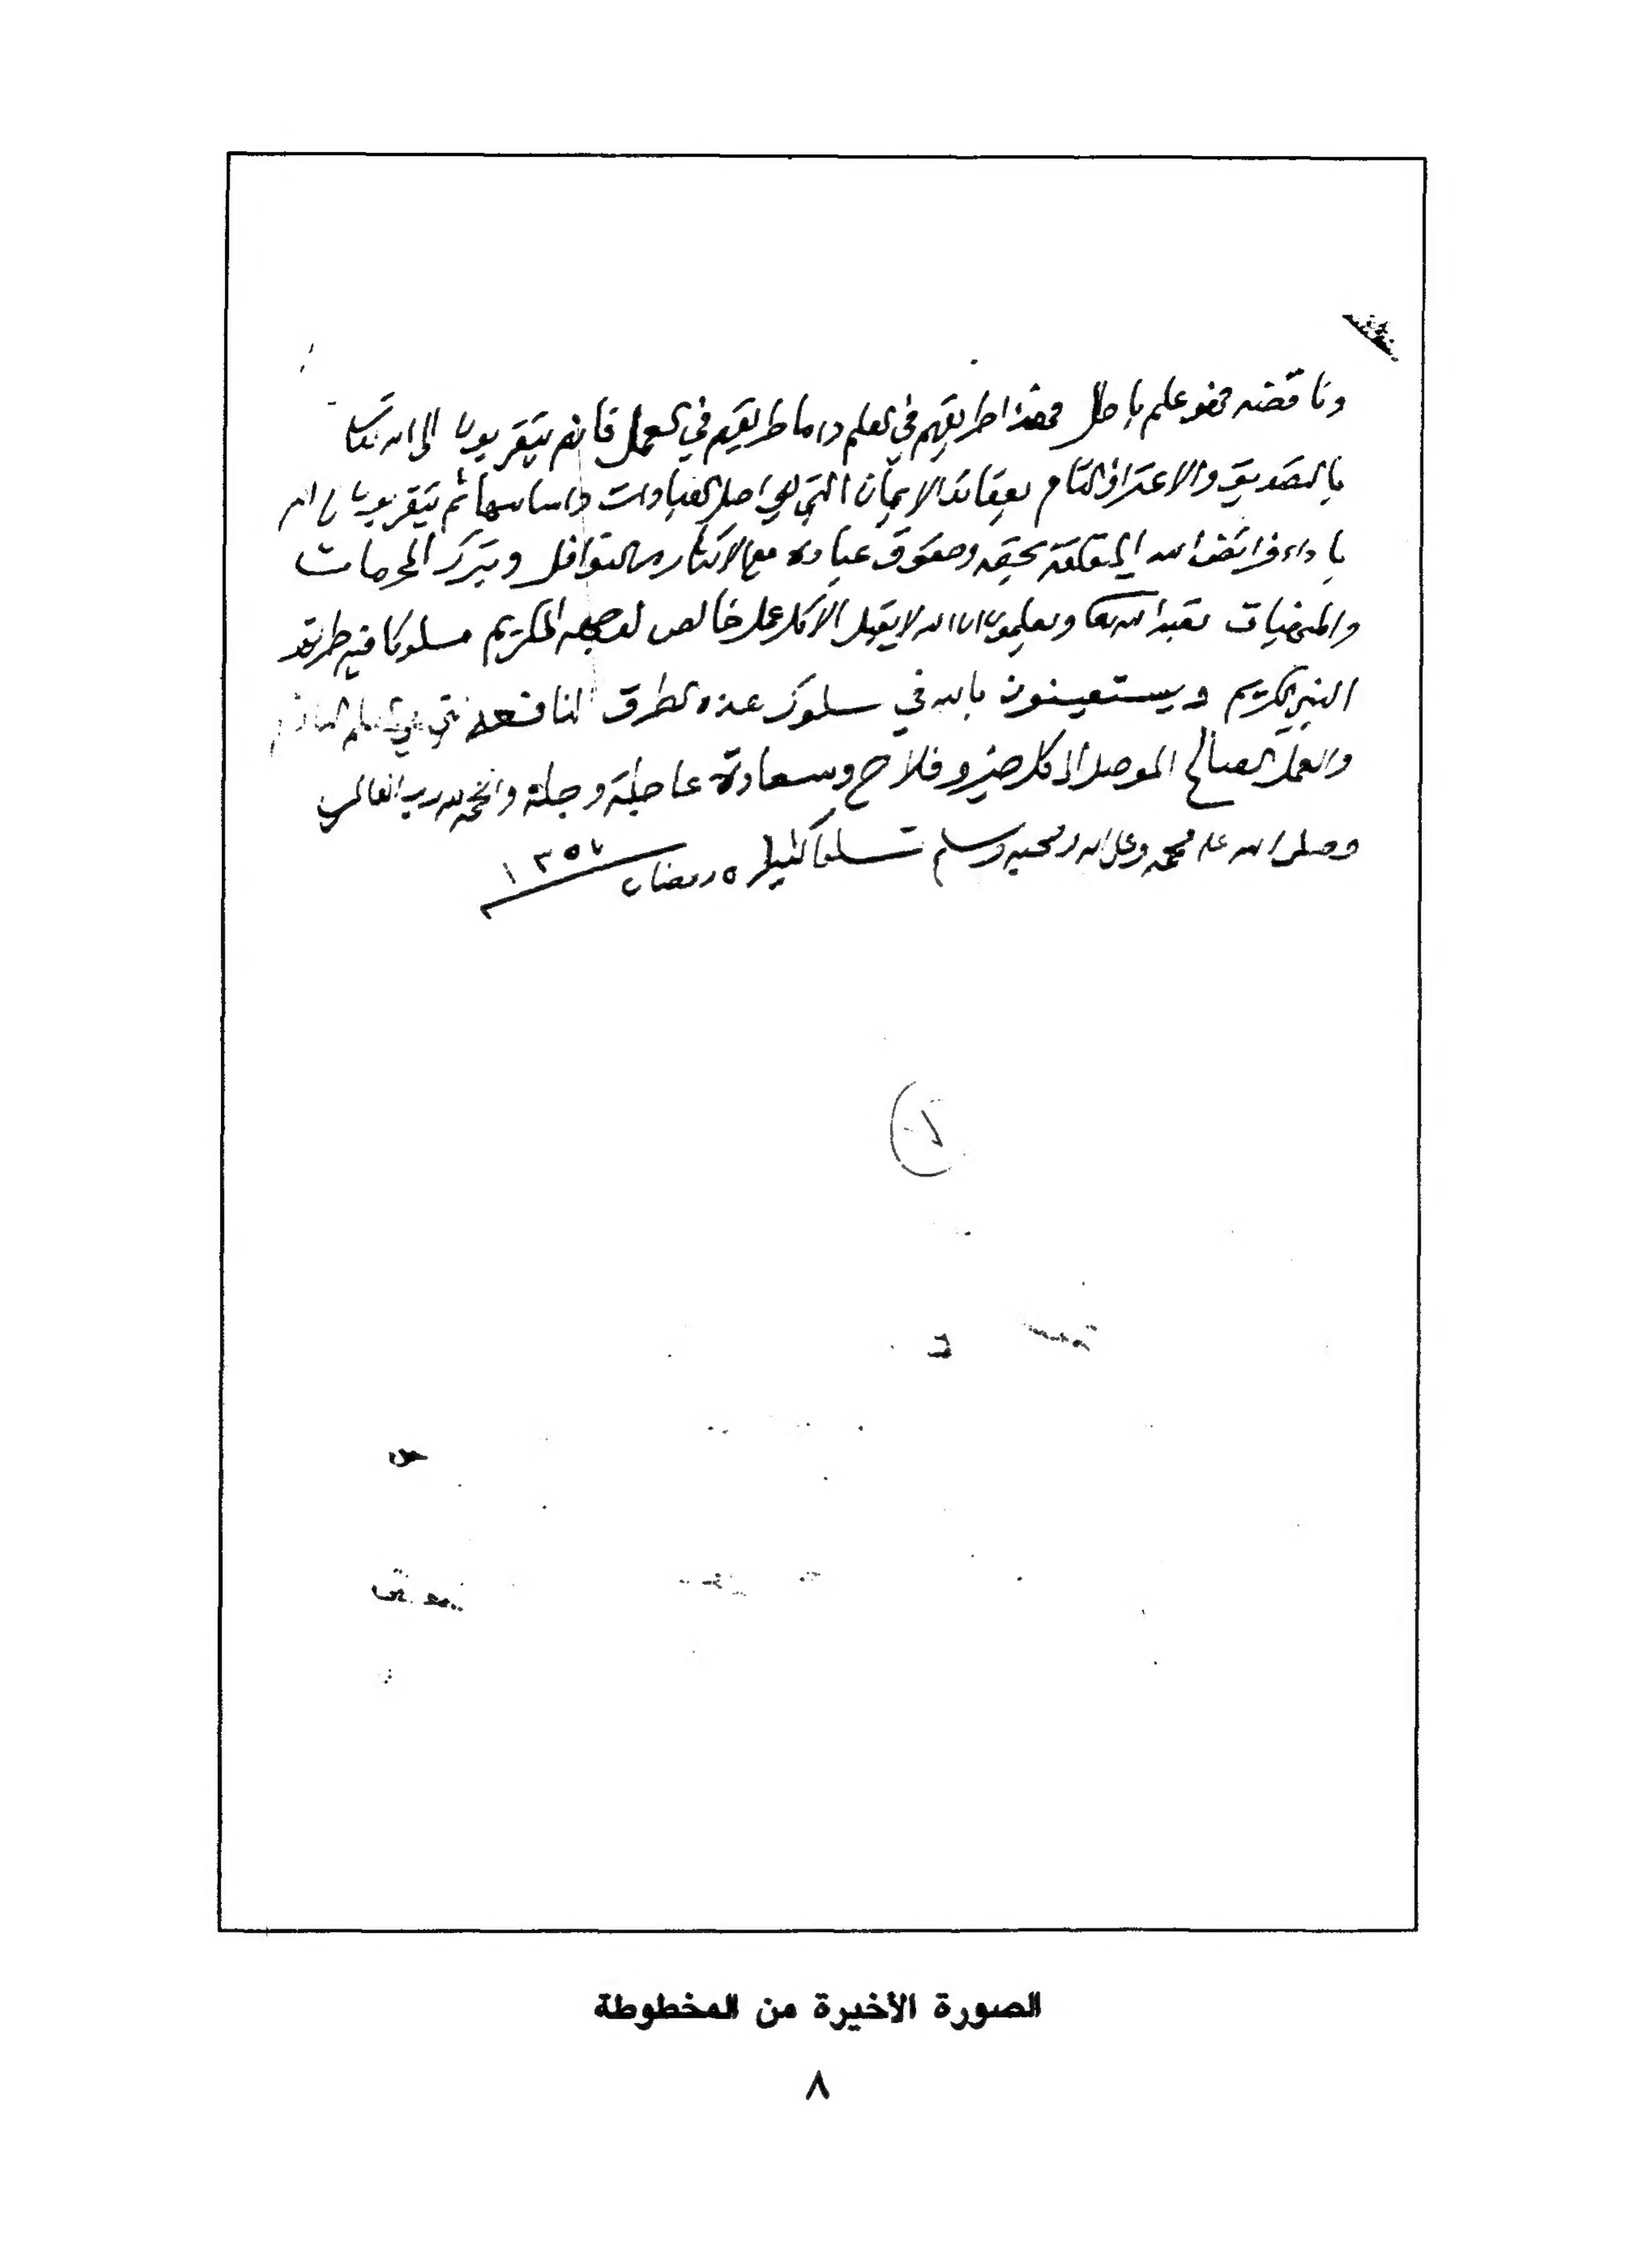 وناقضه فهو علم باطل فهذا طريقهم في العلم واما طريقهم في العمل فانهم يتقربون الى الله تعالى
بالتصديق والاعتراف التام بعقائد الايمان التي هي اصل العبادات واساسها ثم يتقربون الى الله
باداء فرائض الله المتعلقة بحقه وحقوق عباده مع الاكثار من النوافل وبترك المحرمات
والمنهيات تعبدا لله تعالى ويعلمون ان الله لا يقبل الا كل عمل خالص لوجهه الكريم مسلوكا فيه طريقة
النبي الكريم ويستعينون بالله في سلوك هذه الطرق النافعة التي هي العلم النافع
والعمل الصالح الموصل الى كل خير وفلاح وسعادة عاجلة وجلة والحمد لله رب العالمين
وصلى الله على محمد وعلى اله وصحبه وسلم تسليما كثيرا ٥ رمضان ١٣٥٧
الصورة الأخيرة من المخطوطة
٨